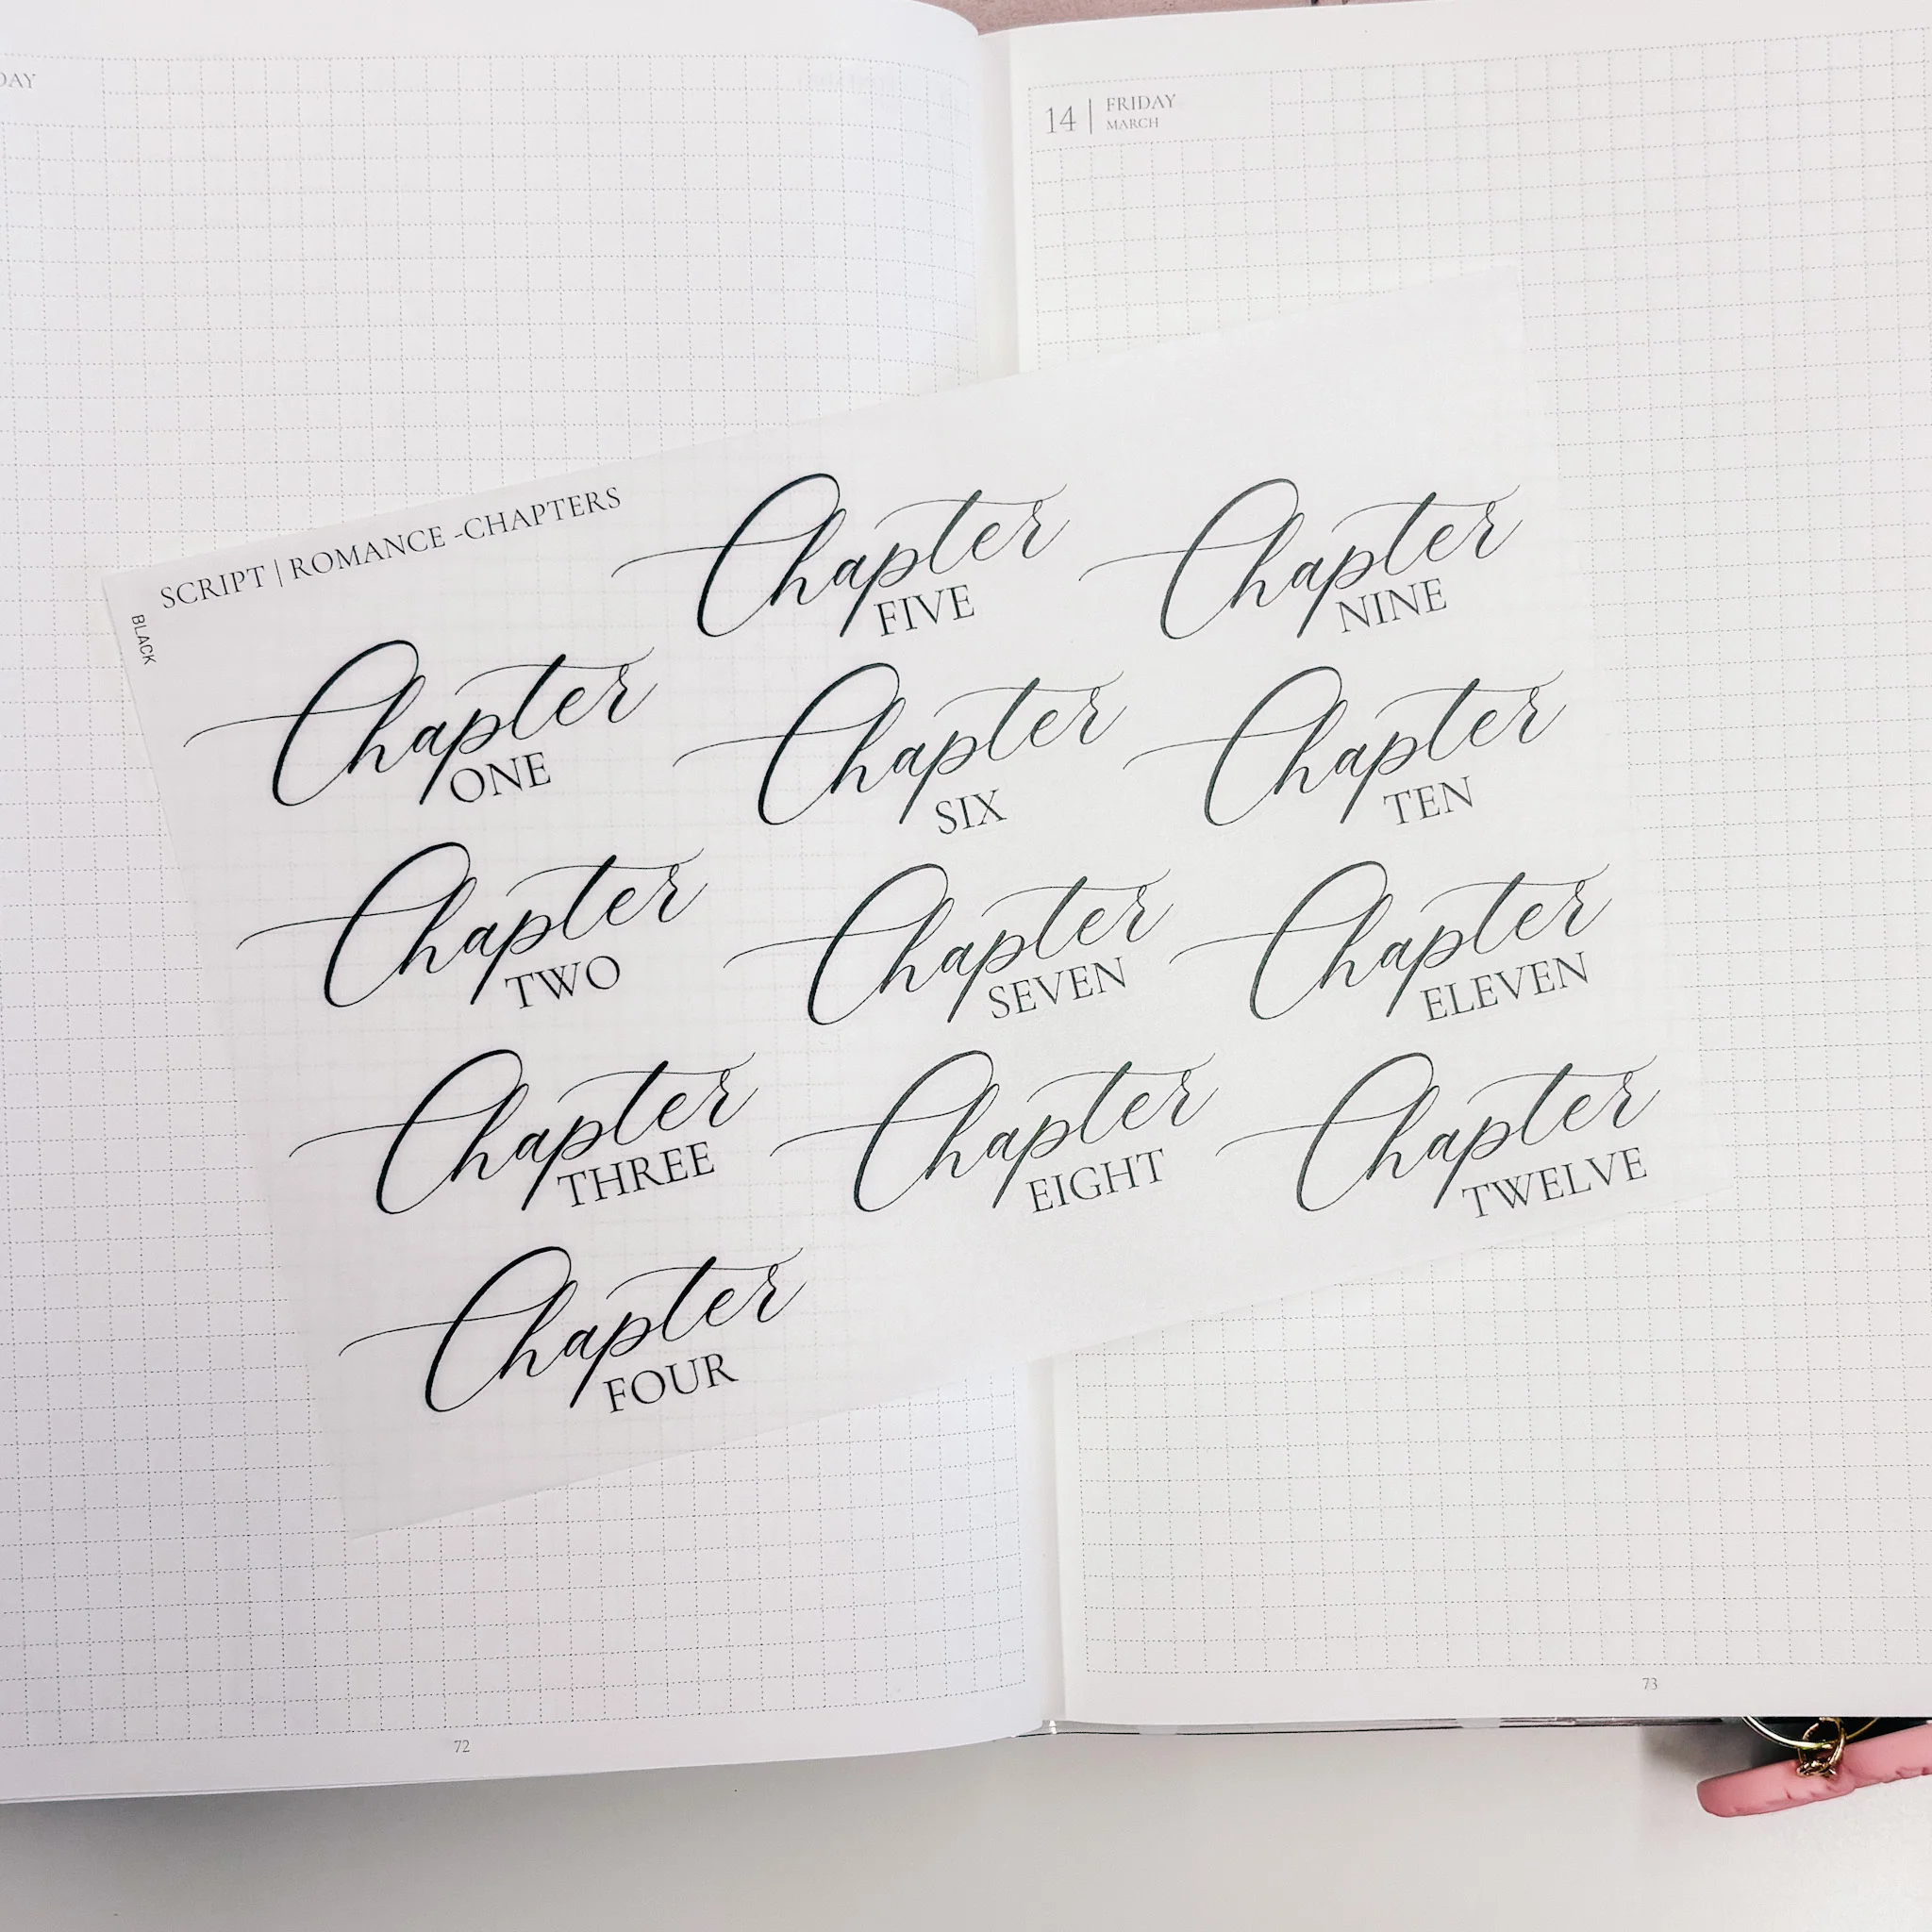 DAY
14 | FRIDAY
MARCH
SCRIPT | ROMANCE -CHAPTERS
BLACK
Chapter
ONE
Chapter
TWO
Chapter
THREE
Chapter
FOUR
Chapter
FIVE
Chapter
SIX
Chapter
SEVEN
Chapter
EIGHT
Chapter
NINE
Chapter
TEN
Chapter
ELEVEN
Chapter
TWELVE
72
73